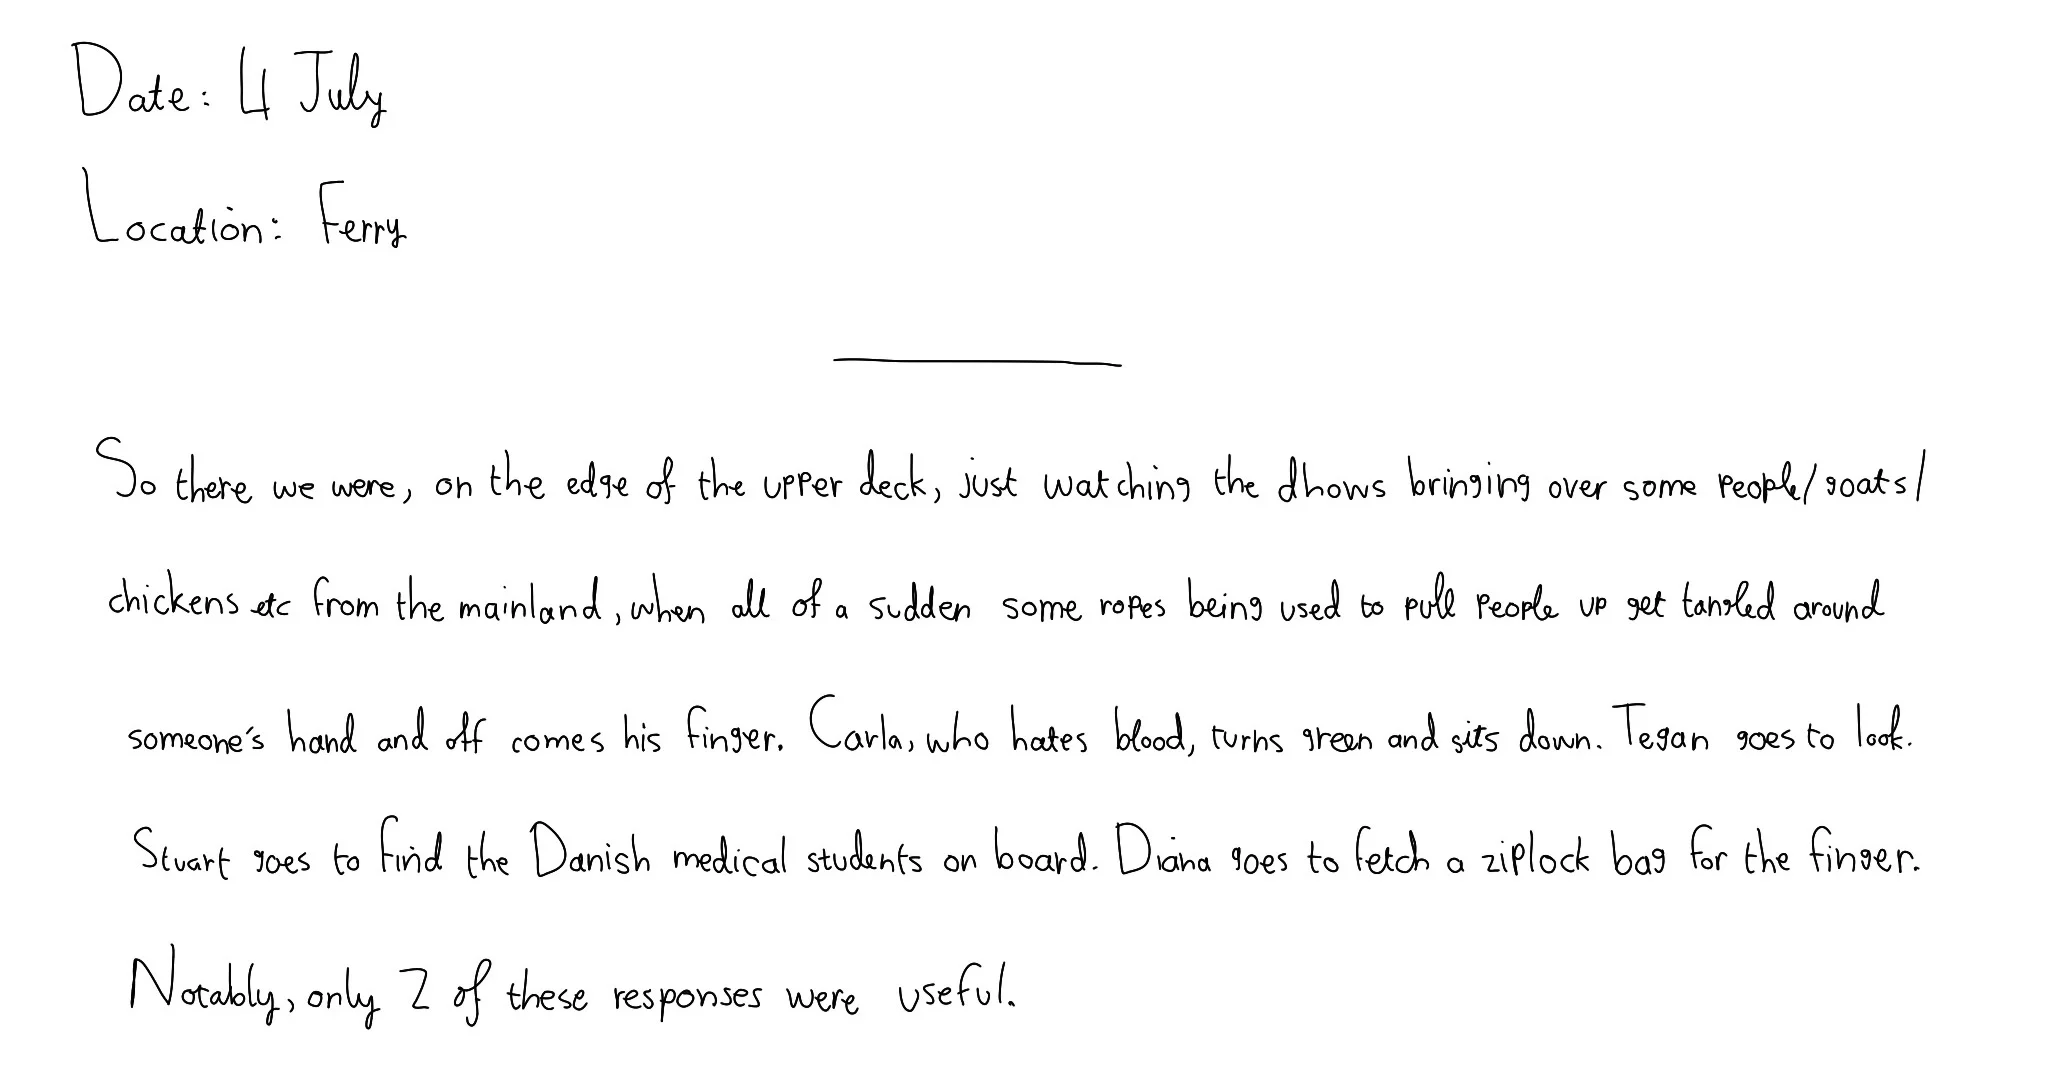 Date: 4 July
Location: Ferry
So there we were, on the edge of the upper deck, just watching the dhows bringing over some people/goats/
chickens etc from the mainland, when all of a sudden some ropes being used to pull people up get tangled around
someone's hand and off comes his finger. Carla, who hates blood, turns green and sits down. Tegan goes to look.
Stuart goes to find the Danish medical students on board. Diana goes to fetch a ziplock bag for the finger.
Notably, only 2 of these responses were useful.